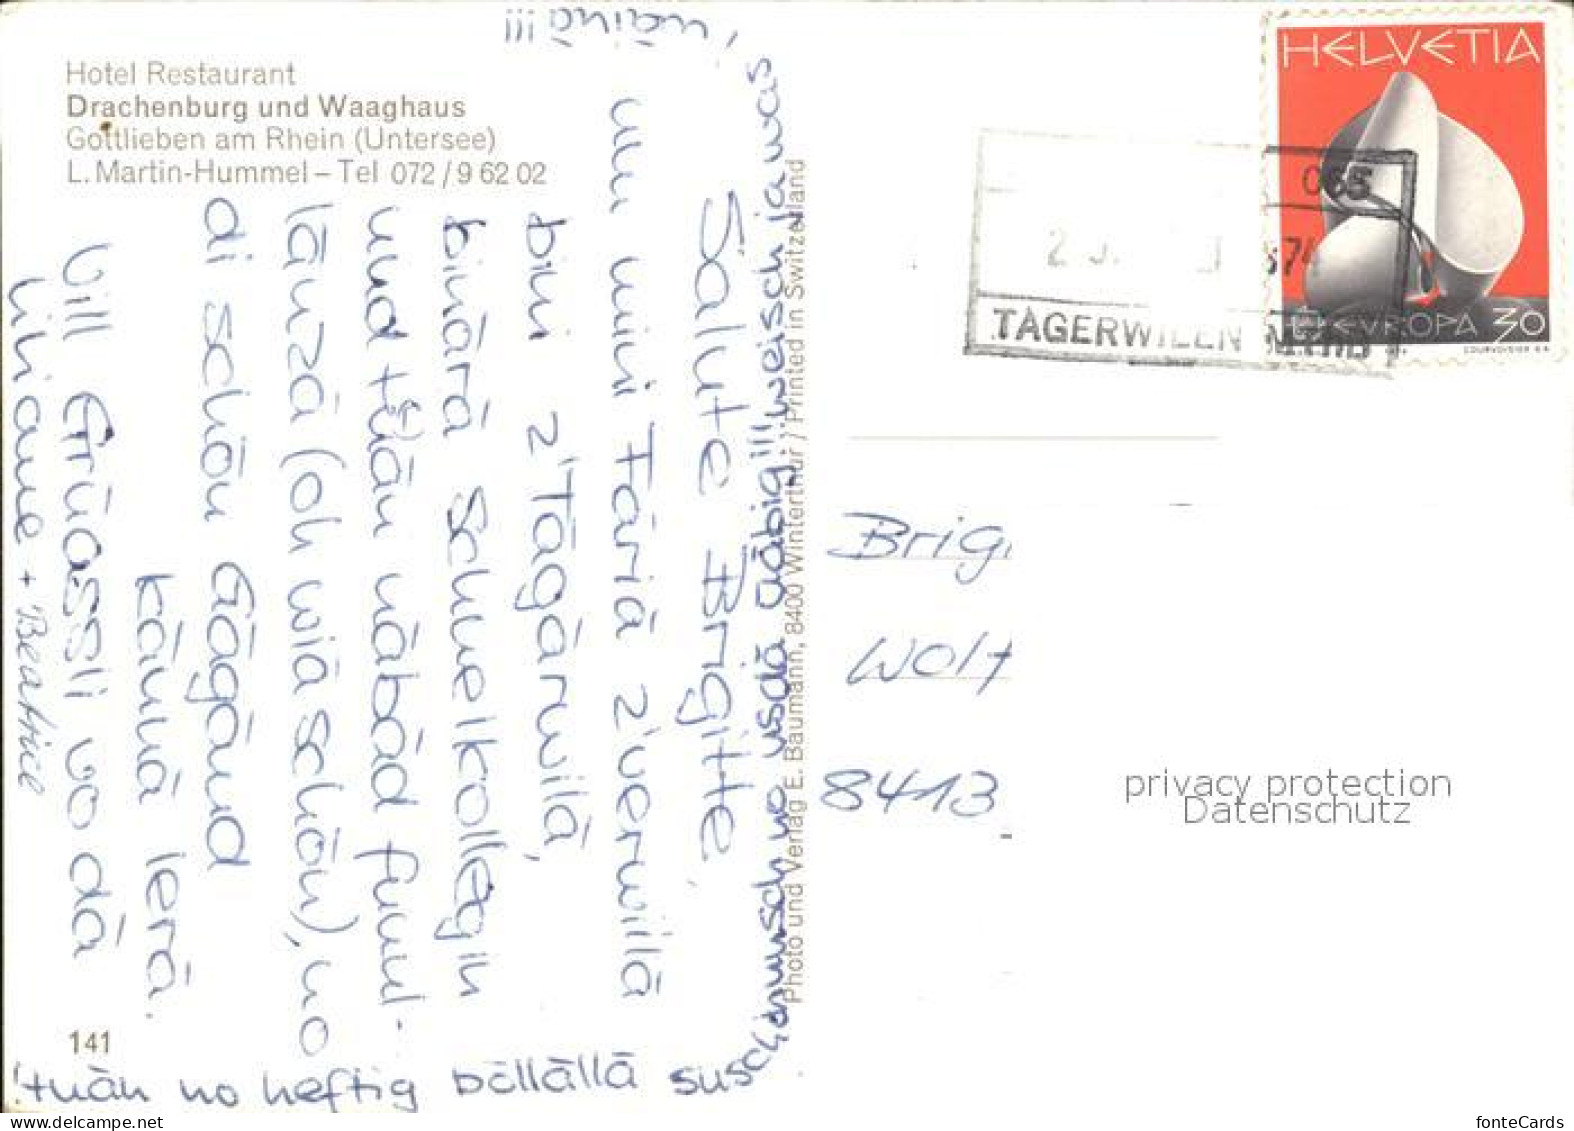 Hotel Restaurant
Drachenburg und Waaghaus
Gottlieben am Rhein (Untersee)
L. Martin-Hummel – Tel 072 / 9 62 02
Salute Brigitte,
um mini Färiä z'verwiilä
bini z'Tägärwilä,
binärä Schuelkollegin
und tüän näbäd fuul-
länzä (oh wiä schön), no
di schön Gägänd
kännä lerä.
Vill Grüassli vo dä
Liliane + Beatrice
! tuän no heftig böllällä suscht
chunsch no usdä Üäbig!!! weisch ja was
i mäinä!!!
141
Photo und Verlag E. Baumann, 8400 Winterthur / Printed in Switzerland
HELVETIA
EVROPA 30
COURVOISIER S.A.
TÄGERWILEN
Brigi
Wolf
8413
privacy protection
Datenschutz
www.delcampe.net
fonteCards